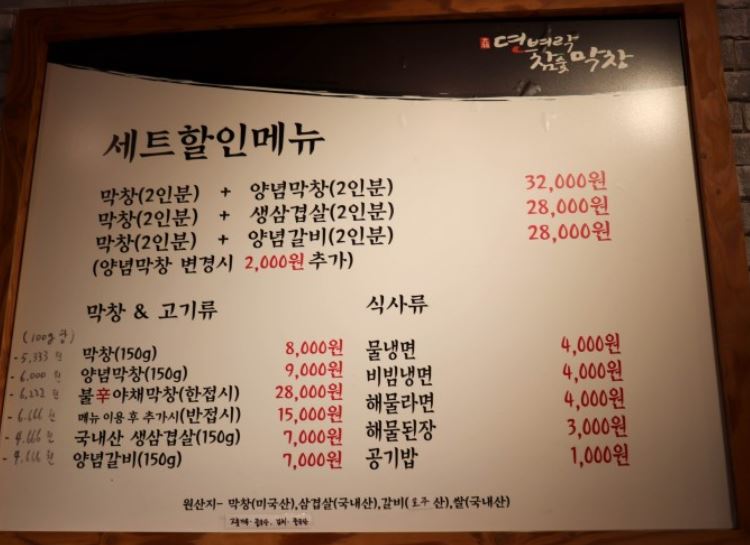 면벼락
참숯 막창
세트할인메뉴
막창(2인분) + 양념막창(2인분) 32,000원
막창(2인분) + 생삼겹살(2인분) 28,000원
막창(2인분) + 양념갈비(2인분) 28,000원
(양념막창 변경시 2,000원 추가)
막창 & 고기류
(100g 당)
-5,333원 막창(150g) 8,000원
-6,000원 양념막창(150g) 9,000원
불辛야채막창(한접시) 28,000원
메뉴 이용 후 추가시(반접시) 15,000원
-4,666원 국내산 생삼겹살(150g) 7,000원
-4,666원 양념갈비(150g) 7,000원
식사류
물냉면 4,000원
비빔냉면 4,000원
해물라면 4,000원
해물된장 3,000원
공기밥 1,000원
원산지- 막창(미국산),삼겹살(국내산),갈비(호주산),쌀(국내산)